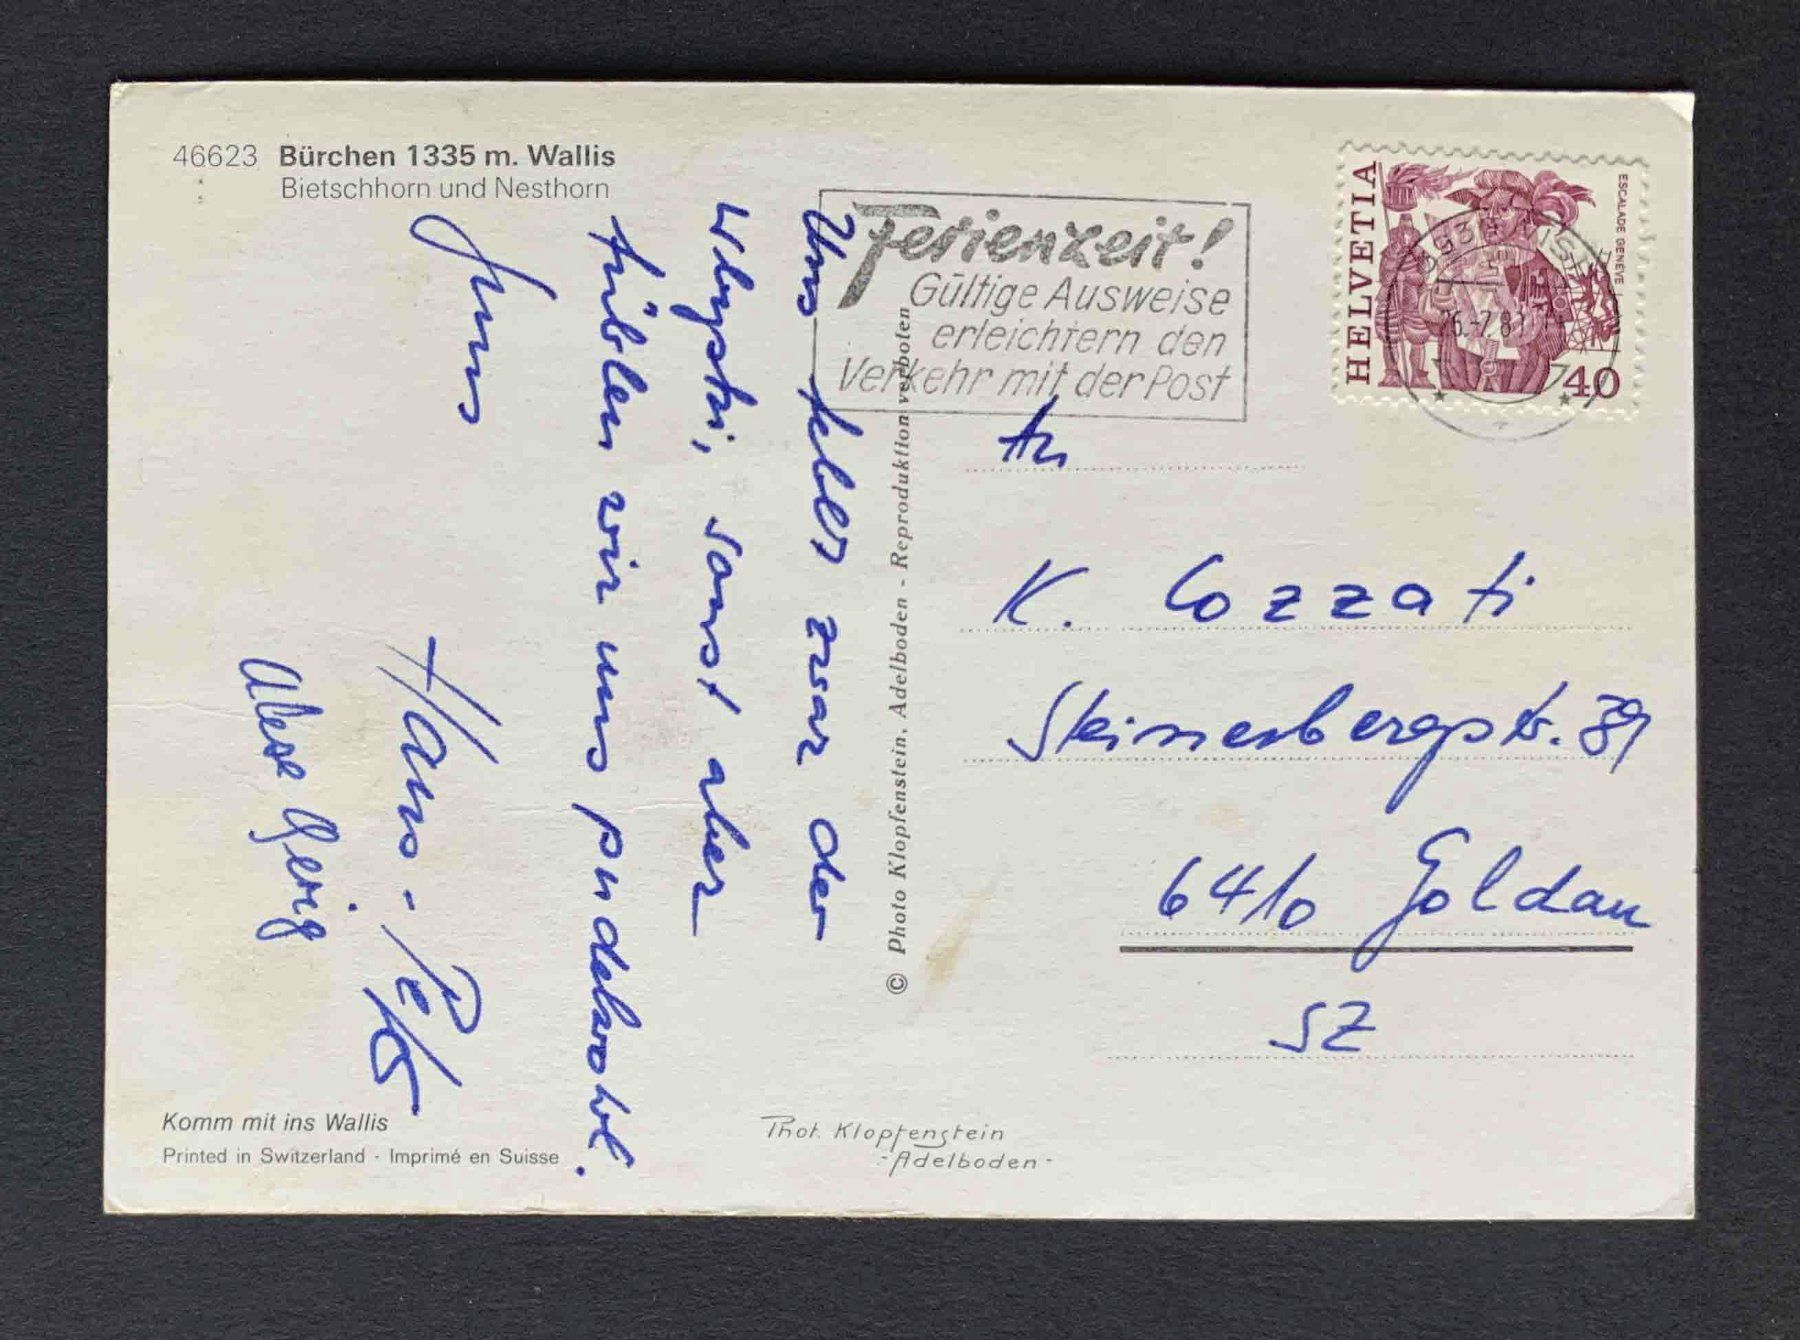 46623 Bürchen 1335 m. Wallis
Bietschhorn und Nesthorn
Ferienzeit!
Gültige Ausweise
erleichtern den
Verkehr mit der Post
HELVETIA
ESCALADE GENÈVE
40
26.-7.8
Uns fehlt zwar der
sonst aber
fühlen wir uns pudelwohl.
Hans-Peter
Georg
© Photo Klopfenstein, Adelboden - Reproduktion verboten
An
K. Cozzati
Steinerbergstr. 39
6410 Goldau
SZ
Komm mit ins Wallis
Printed in Switzerland · Imprimé en Suisse
Phot. Klopfenstein
-Adelboden-